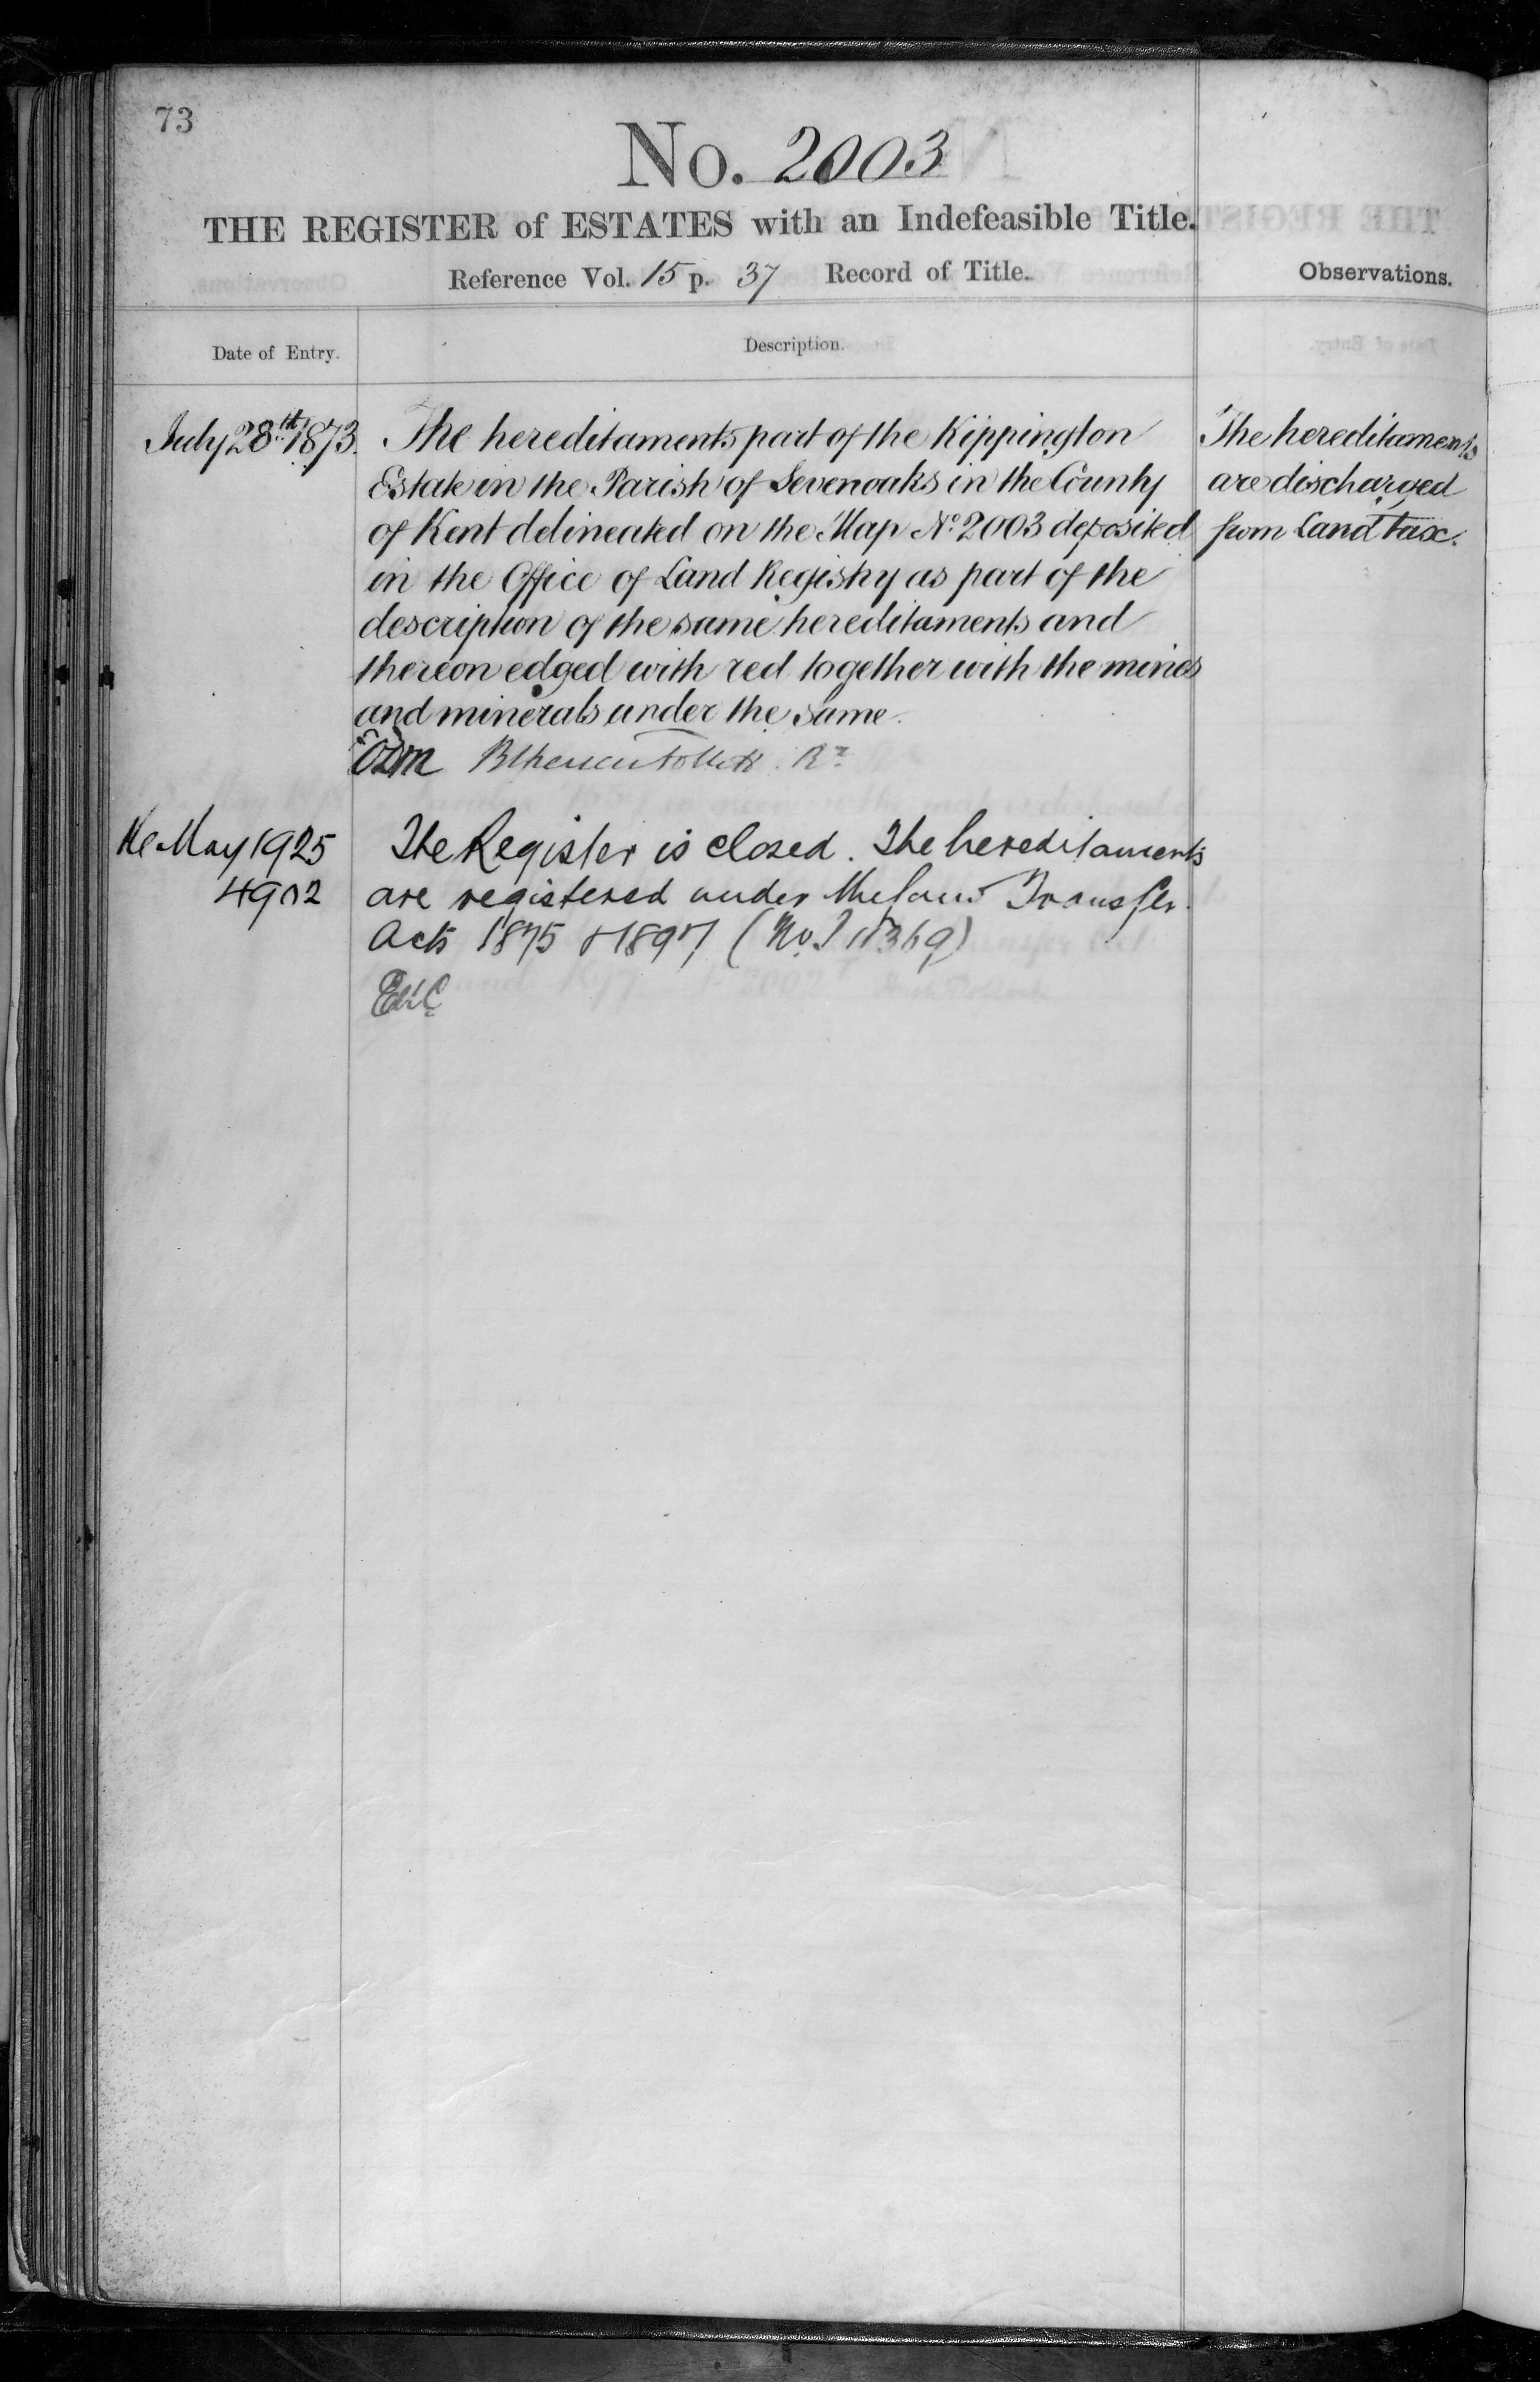 73
No. 2003
THE REGISTER of ESTATES with an Indefeasible Title.
Reference Vol. 15 p. 37 Record of Title.
Observations.
Date of Entry.
Description.
July 28th 1873.
The hereditaments part of the Kippington
Estate in the Parish of Sevenoaks in the County
of Kent delineated on the Map No. 2003 deposited
in the Office of Land Registry as part of the
description of the same hereditaments and
thereon edged with red together with the mines
and minerals under the same.
The hereditaments
are discharged
from Land tax.
May 1925
4902
The Register is closed. The hereditaments
are registered under the Land Transfer
Acts 1875 & 1897 (No.